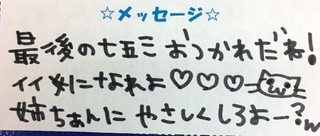 ☆メッセージ☆
最後の七五三 おつかれだね!
イイ妹になれよ♡♡♡
姉ちゃんに やさしくしろよー?w